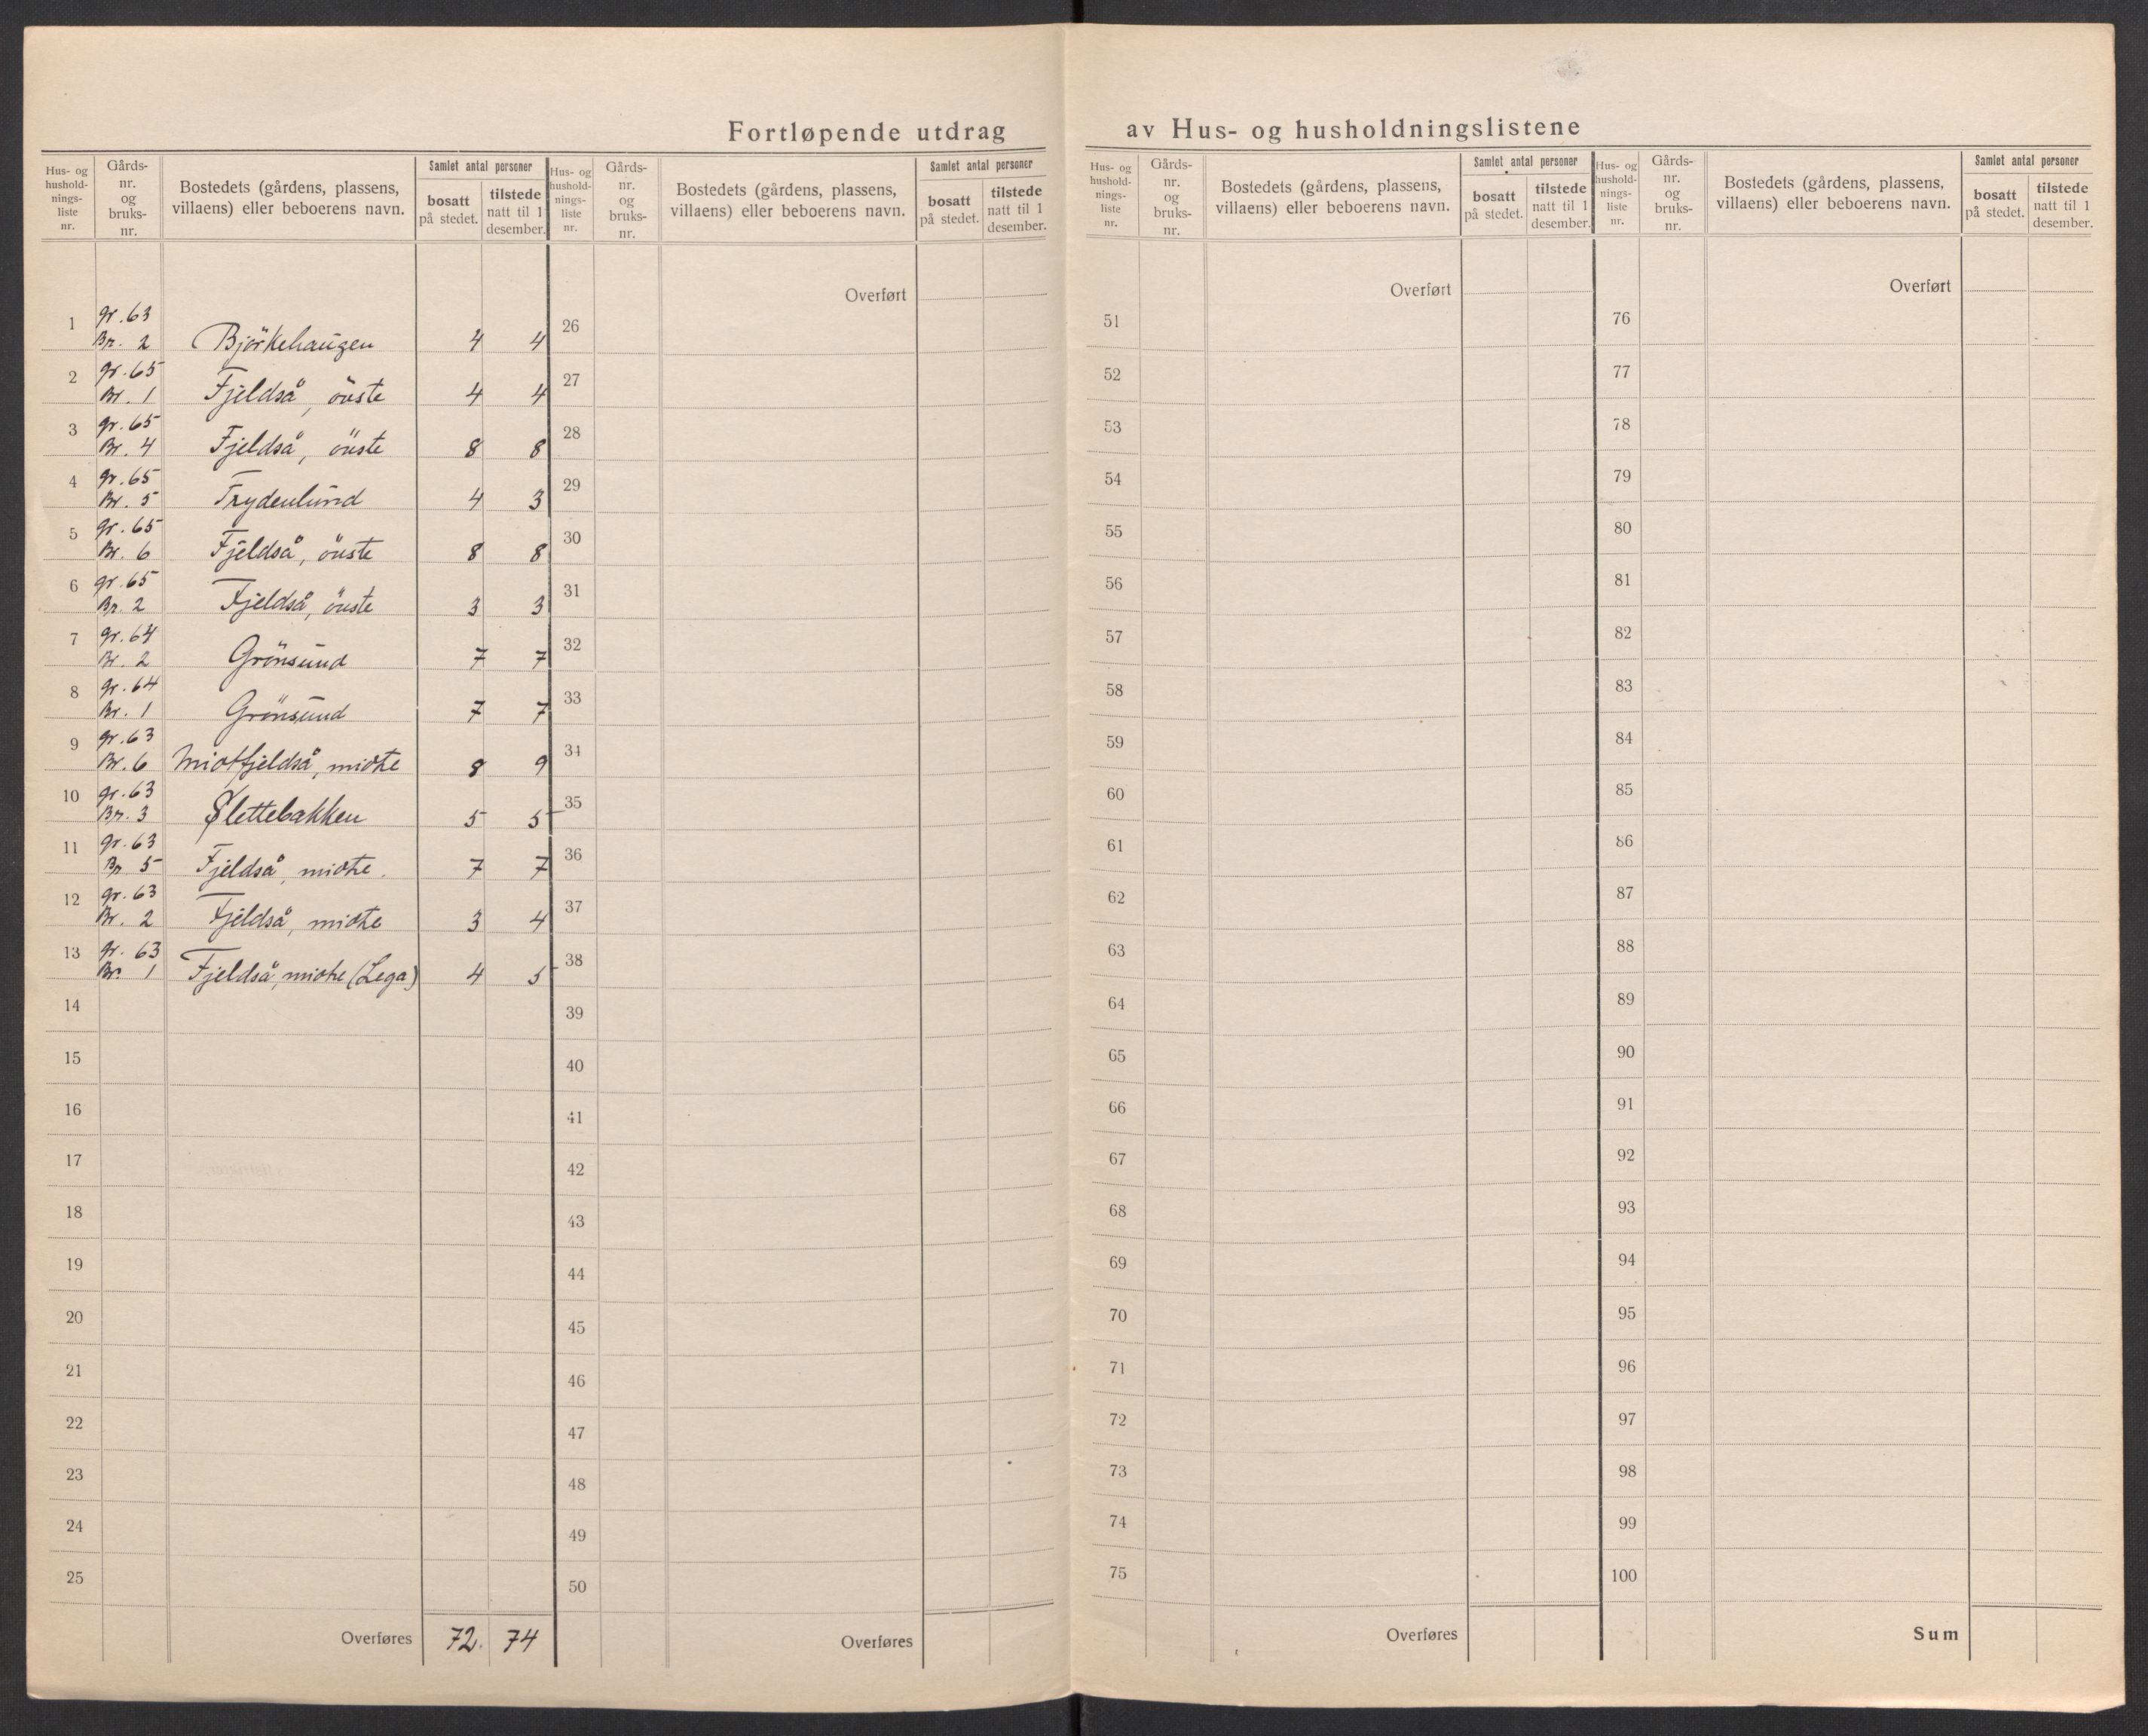 Fortløpende utdrag av Hus- og husholdningslistene
Hus- og
hushold-
nings-
liste
nr.
Gårds-
nr.
og
bruks-
nr.
Bostedets (gårdens, plassens,
villaens) eller beboerens navn.
Samlet antal personer
bosatt
på stedet.
tilstede
natt til 1
desember.
1 gr. 63
Br. 2 Björkehaugen 4 4
2 gr. 65
Br. 1 Fjeldså, öuste 4 4
3 gr. 65
Br. 4 Fjeldså, öuste 8 8
4 gr. 65
Br. 5 Frydenlund 4 3
5 gr. 65
Br. 6 Fjeldså, öuste 8 8
6 gr. 65
Br. 2 Fjeldså, öuste 3 3
7 gr. 64
Br. 2 Grönsund 7 7
8 gr. 64
Br. 1 Grönsund 7 7
9 gr. 63
Br. 6 Midtfjeldså, midtre 8 9
10 gr. 63
Br. 3 Slettebakken 5 5
11 gr. 63
Br. 5 Fjeldså, midtre. 7 7
12 gr. 63
Br. 2 Fjeldså, midtre 3 4
13 gr. 63
Br. 1 Fjeldså, midtre (Lega) 4 5
14
15
16
17
18
19
20
21
22
23
24
25
Overføres 72. 74
Hus- og
hushold-
nings-
liste
nr.
Gårds-
nr.
og
bruks-
nr.
Bostedets (gårdens, plassens,
villaens) eller beboerens navn.
Samlet antal personer
bosatt
på stedet.
tilstede
natt til 1
desember.
Overført
26
27
28
29
30
31
32
33
34
35
36
37
38
39
40
41
42
43
44
45
46
47
48
49
50
Overføres
Hus- og
hushold-
nings-
liste
nr.
Gårds-
nr.
og
bruks-
nr.
Bostedets (gårdens, plassens,
villaens) eller beboerens navn.
Samlet antal personer
bosatt
på stedet.
tilstede
natt til 1
desember.
Overført
51
52
53
54
55
56
57
58
59
60
61
62
63
64
65
66
67
68
69
70
71
72
73
74
75
Overføres
Hus- og
hushold-
nings-
liste
nr.
Gårds-
nr.
og
bruks-
nr.
Bostedets (gårdens, plassens,
villaens) eller beboerens navn.
Samlet antal personer
bosatt
på stedet.
tilstede
natt til 1
desember.
Overført
76
77
78
79
80
81
82
83
84
85
86
87
88
89
90
91
92
93
94
95
96
97
98
99
100
Sum